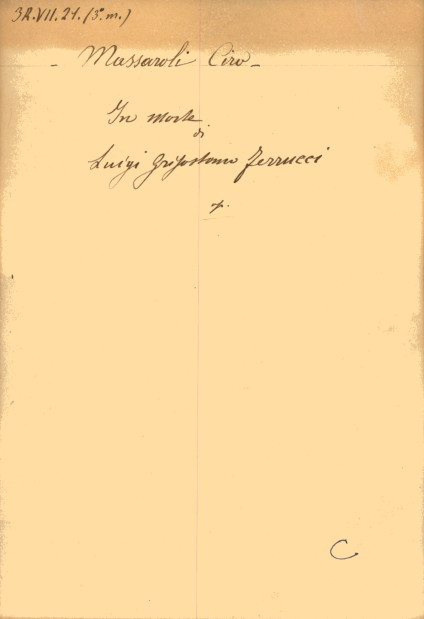 32.VII.21.(3°.m.)
- Massaroli Ciro -
In morte
di
Luigi Grisostomo Ferrucci
C